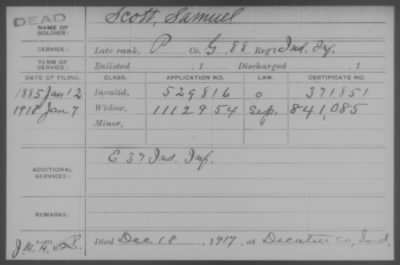 DEAD
NAME OF SOLDIER: Scott, Samuel
SERVICE: Late rank, P Co. G, 88 Reg't Ind. Inf.
TERM OF SERVICE: Enlisted , 1 Discharged , 1
DATE OF FILING. CLASS. APPLICATION NO. LAW. CERTIFICATE NO.
1885 Jan 12 Invalid, 529816 o 371851
1918 Jan 7 Widow, 1112954 Sep. 841,085
Minor,
ADDITIONAL SERVICES: E 37 Ind. Inf.
REMARKS:
Died Dec 18, 1917, at Decatur Co, Ind.